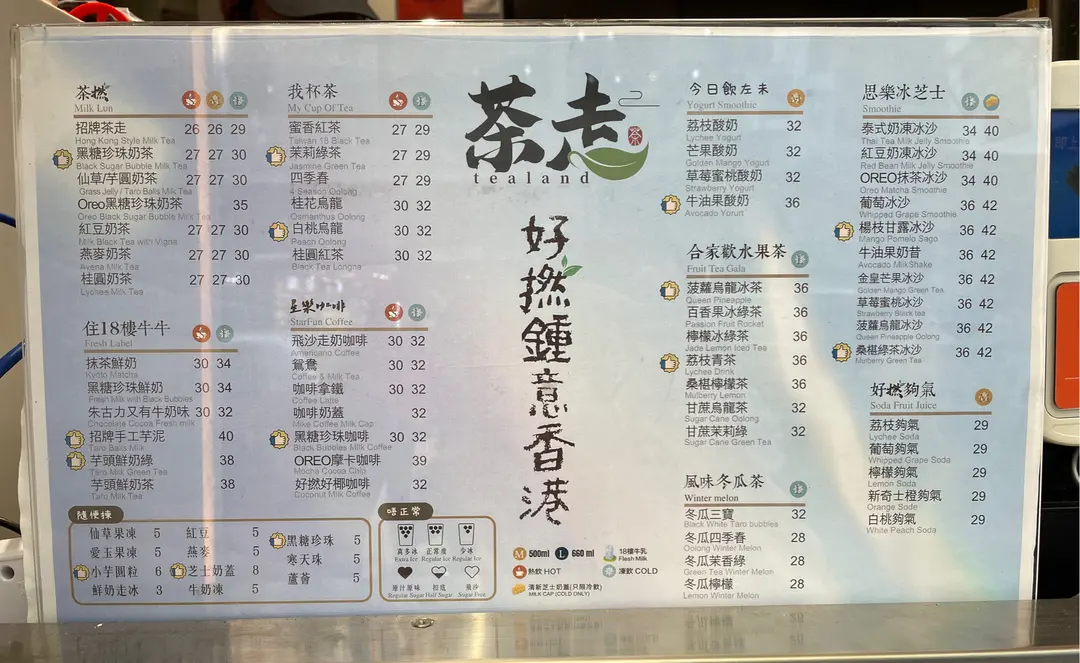 茶撚
Milk Lun
招牌茶走 26 26 29
Hong Kong Style Milk Tea
黑糖珍珠奶茶 27 27 30
Black Sugar Bubble Milk Tea
仙草/芋圓奶茶 27 27 30
Grass Jelly / Taro Balls Milk Tea
Oreo黑糖珍珠奶茶 35
Oreo Black Sugar Bubble Milk Tea
紅豆奶茶 27 27 30
Milk Black Tea with Vigna
燕麥奶茶 27 27 30
Avena Milk Tea
桂圓奶茶 27 27 30
Lychee Milk Tea
住18樓牛牛
Fresh Label
抹茶鮮奶 30 34
Kyoto Matcha
黑糖珍珠鮮奶 30 34
Fresh Milk with Black Bubbles
朱古力又有牛奶味 30 32
Chocolate Cocoa Fresh milk
招牌手工芋泥 40
Taro Balls Milk
芋頭鮮奶綠 38
Taro Milk Green Tea
芋頭鮮奶茶 38
Taro Milk Tea
隨便揀
仙草果凍 5 紅豆 5 黑糖珍珠 5
愛玉果凍 5 燕麥 5 寒天珠 5
小芋圓粒 6 芝士奶蓋 8 蘆薈 5
鮮奶走冰 3 牛奶凍 5
我杯茶
My Cup Of Tea
蜜香紅茶 27 29
Taiwan 18 Black Tea
茉莉綠茶 27 29
Jasmine Green Tea
四季春 27 29
4 Season Oolong
桂花烏龍 30 32
Osmanthus Oolong
白桃烏龍 30 32
Peach Oolong
桂圓紅茶 30 32
Black Tea Longna
星樂咖啡
StarFun Coffee
飛沙走奶咖啡 30 32
Americano Coffee
鴛鴦 30 32
Coffee & Milk Tea
咖啡拿鐵 30 32
Coffee Latte
咖啡奶蓋 32
Mike Coffee Milk Cap
黑糖珍珠咖啡 30 32
Black Bubbles Milk Coffee
OREO摩卡咖啡 39
Mocha Cocoa Chip
好撚好椰咖啡 32
Coconut Milk Coffee
唔正常
真多冰 正常座 少冰
Extra Ice Regular Ice Regular Ice
原汁原味 扣底 飛沙
Regular Sugar Half Sugar Sugar Free
茶走
茶
tealand
好撚鍾意香港
M 500ml L 660 ml 18樓牛乳
Flesh Milk
熱飲 HOT 凍飲 COLD
清新芝士奶蓋(只限冷飲)
MILK CAP (COLD ONLY)
今日飲左未
Yogurt Smoothie
荔枝酸奶 32
Lychee Yogurt
芒果酸奶 32
Golden Mango Yogurt
草莓蜜桃酸奶 32
Strawberry Yogurt
牛油果酸奶 36
Avocado Yorurt
合家歡水果茶
Fruit Tea Gala
菠蘿烏龍冰茶 36
Queen Pineapple
百香果冰綠茶 36
Passion Fruit Rocket
檸檬冰綠茶 36
Jade Lemon Iced Tea
荔枝青茶 36
Lychee Drink
桑椹檸檬茶 36
Mulberry Lemon
甘蔗烏龍茶 32
Sugar Cane Oolong
甘蔗茉莉綠 32
Sugar Cane Green Tea
風味冬瓜茶
Winter melon
冬瓜三寶 32
Black White Taro bubbles
冬瓜四季春 28
Oolong Winter Melon
冬瓜茉香綠 28
Green Tea Winter Melon
冬瓜檸檬 28
Lemon Winter Melon
思樂冰芝士
Smoothie
泰式奶凍冰沙 34 40
Thai Tea Milk Jelly Smoothie
紅豆奶凍冰沙 34 40
Red Bean Milk Jelly Smoothie
OREO抹茶冰沙 34 40
Oreo Matcha Smoothie
葡萄冰沙 36 42
Whipped Grape Smoothie
楊枝甘露冰沙 36 42
Mango Pomelo Sago
牛油果奶昔 36 42
Avocado MilkShake
金皇芒果冰沙 36 42
Golden Mango Green Tea
草莓蜜桃冰沙 36 42
Strawberry Black tea
菠蘿烏龍冰沙 36 42
Queen Pineapple Oolong
桑椹綠茶冰沙 36 42
Mulberry Green Tea
好撚夠氣
Soda Fruit Juice
荔枝夠氣 29
Lychee Soda
葡萄夠氣 29
Whipped Grape Soda
檸檬夠氣 29
Lemon Soda
新奇士橙夠氣 29
Orange Soda
白桃夠氣 29
White Peach Soda